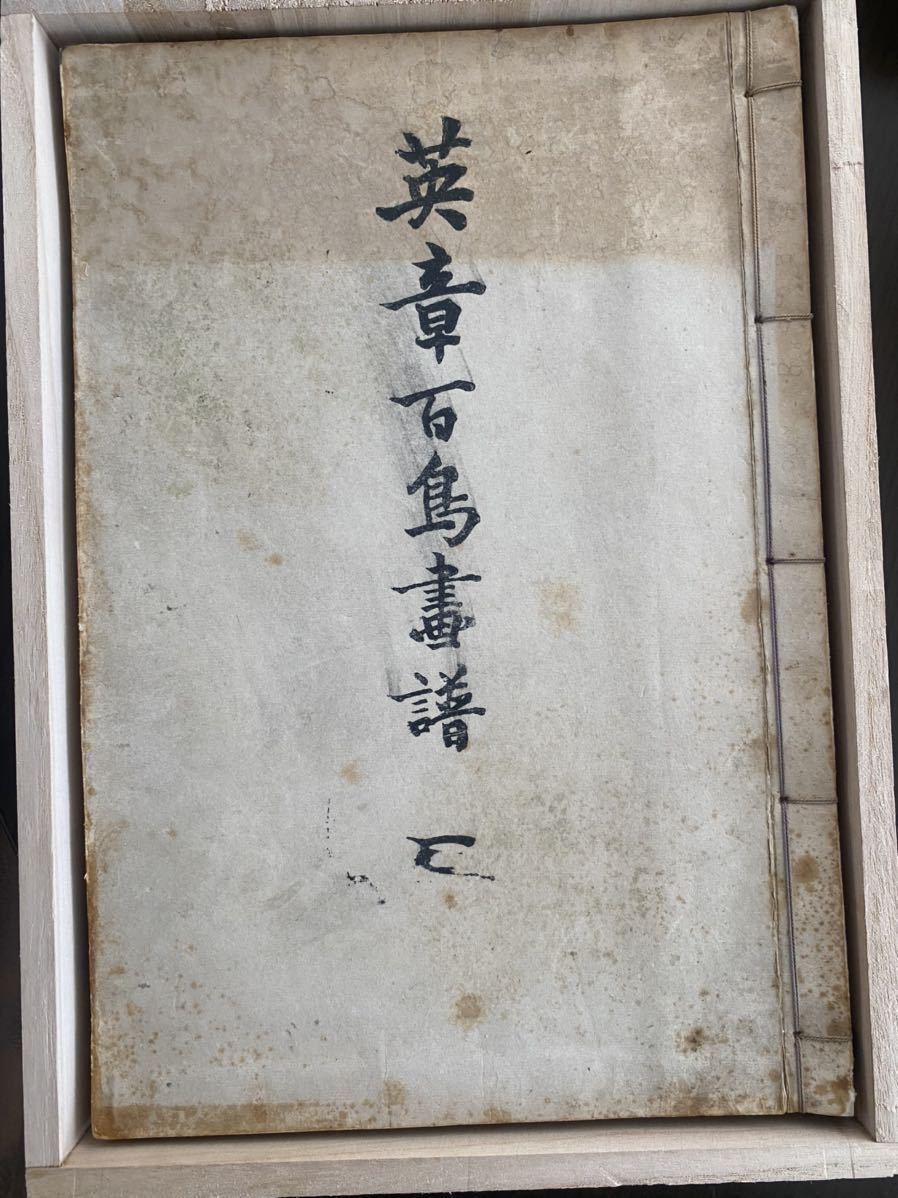 英章百鳥畫譜